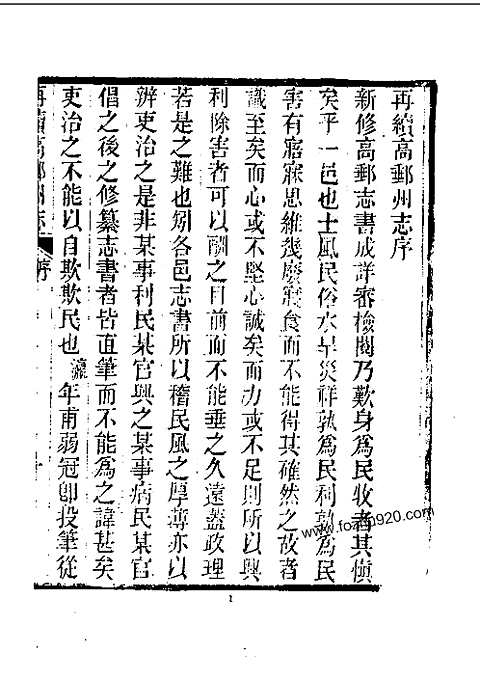 再續高郵州志序
新修高郵志書成詳審檢閱乃歎身爲民牧者其愼
矣乎一邑也士風民俗水旱災祥孰爲民利孰爲民
害有寤寐思維幾廢寢食而不能得其確然之故者
識至矣而心或不堅心誠矣而力或不足則所以興
利除害者可以酬之目前而不能垂之久遠蓋政理
若是之難也矧各邑志書所以稽民風之厚薄亦以
辨吏治之是非某事利民某官興之某事病民某官
倡之後之修纂志書者皆直筆而不能爲之諱甚矣
吏治之不能以自欺欺民也瀛年甫弱冠卽投筆從
再續高郵州志 序
www.foz1920.com
1